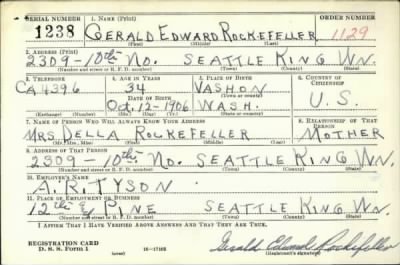 SERIAL NUMBER 1. NAME (Print) ORDER NUMBER
1238 GERALD EDWARD ROCKEFELLER 1129
(First) (Middle) (Last)
2. ADDRESS (Print)
2309-10th No. SEATTLE KING WN.
(Number and street or R. F. D. number) (Town) (County) (State)
3. TELEPHONE 4. AGE IN YEARS 5. PLACE OF BIRTH 6. COUNTRY OF CITIZENSHIP
CA 4396 34 VASHON
DATE OF BIRTH (Town or county)
Oct. 12-1906 WASH. U.S.
(Exchange) (Number) (Mo.) (Day) (Yr.) (State or country)
7. NAME OF PERSON WHO WILL ALWAYS KNOW YOUR ADDRESS 8. RELATIONSHIP OF THAT PERSON
MRS. DELLA ROCKEFELLER MOTHER
(Mr., Mrs., Miss) (First) (Middle) (Last)
9. ADDRESS OF THAT PERSON
2309-10th No. SEATTLE KING WN.
(Number and street or R. F. D. number) (Town) (County) (State)
10. EMPLOYER'S NAME
A. R. TYSON
11. PLACE OF EMPLOYMENT OR BUSINESS
12th & PINE SEATTLE KING WN.
(Number and street or R. F. D. number) (Town) (County) (State)
I AFFIRM THAT I HAVE VERIFIED ABOVE ANSWERS AND THAT THEY ARE TRUE.
REGISTRATION CARD
D. S. S. Form 1 (over) 16-17105 Gerald Edward Rockefeller
(Registrant's signature)